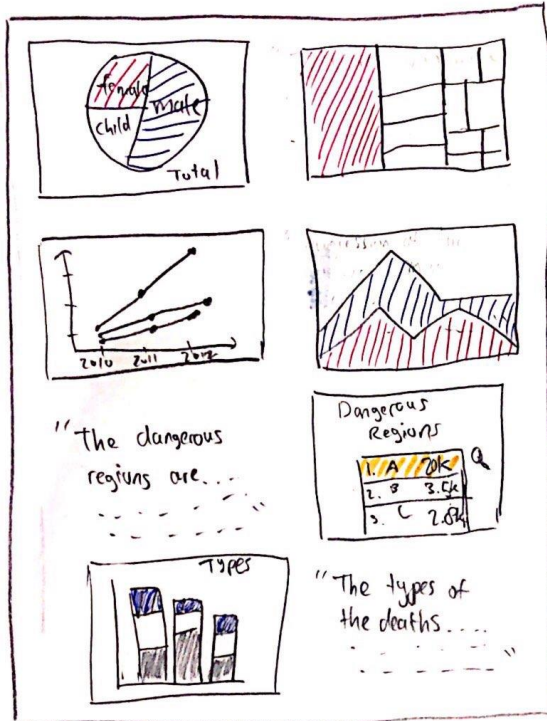 female
male
child
Total
2010 2011 2012
"The dangerous
regions are....
"
Dangerous
Regions
1. A 20K
2. B 3.5K
3. C 2.8K
Types
"The types of
the deaths....
"